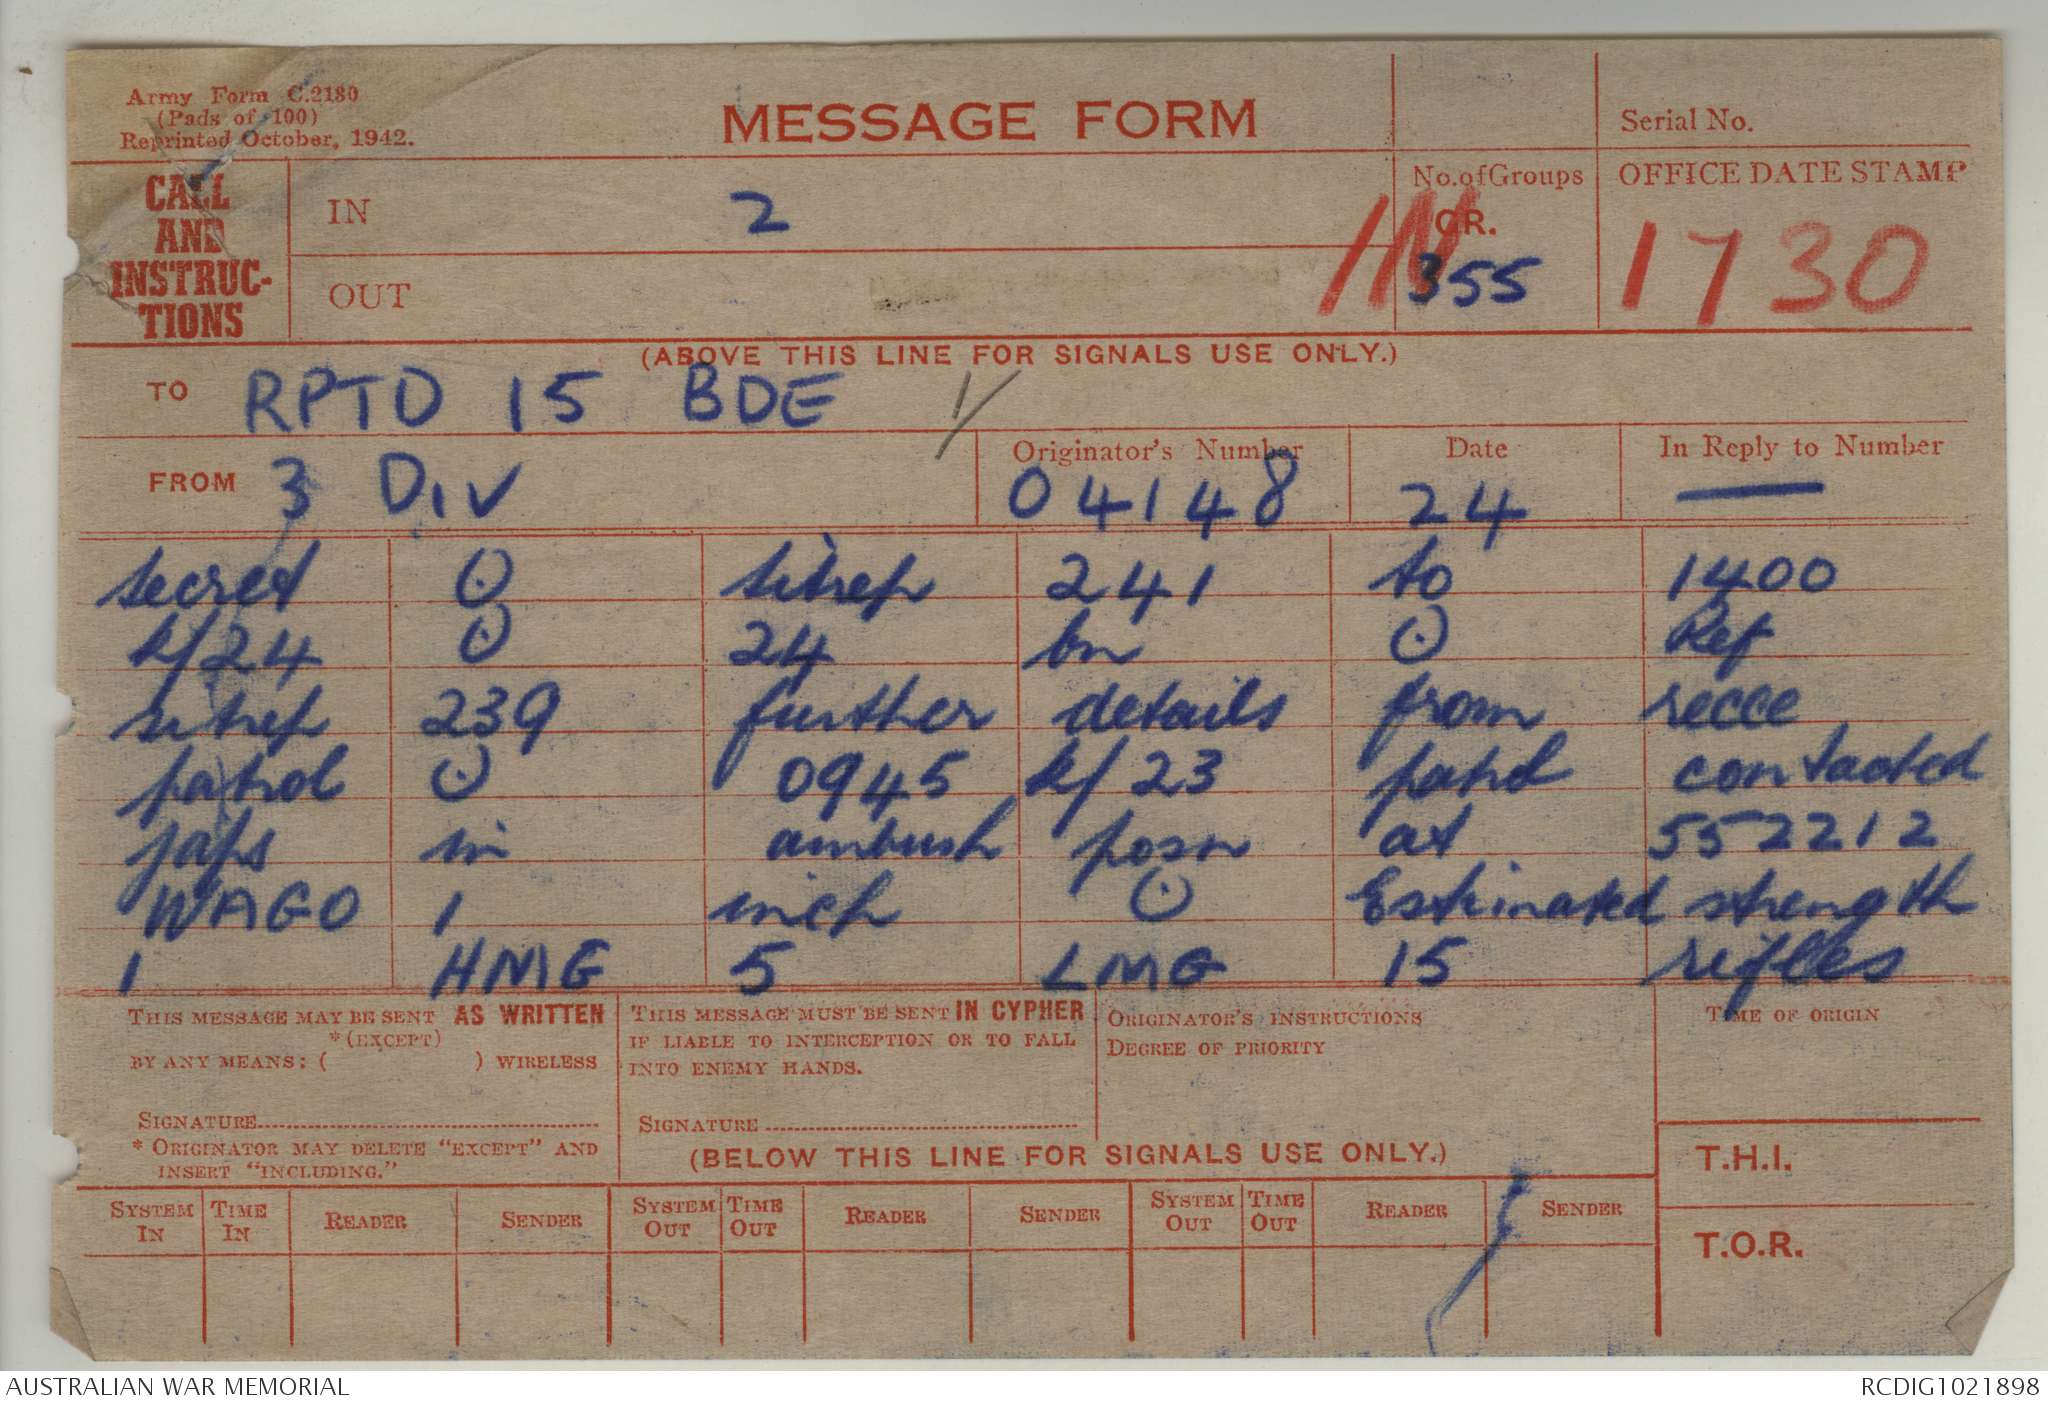 Army Form C.2130
(Pads of 100)
Reprinted October, 1942.
MESSAGE FORM
Serial No.
CALL AND INSTRUC-TIONS
IN 2
OUT
No. of Groups
GR.
355
OFFICE DATE STAMP
1730
(ABOVE THIS LINE FOR SIGNALS USE ONLY.)
TO RPTD 15 BDE
FROM 3 DIV
Originator's Number
04148
Date
24
In Reply to Number
—
secret ⊙ sitrep 241 to 1400
k/24 ⊙ 24 bn ⊙ Ref
sitrep 239 further details from recce
patrol ⊙ 0945 k/23 patrol contacted
japs in ambush posn at 552212
WAGO 1 inch ⊙ Estimated strength
1 HMG 5 LMG 15 rifles
THIS MESSAGE MAY BE SENT AS WRITTEN
*(EXCEPT)
BY ANY MEANS: ( ) WIRELESS
SIGNATURE
* ORIGINATOR MAY DELETE "EXCEPT" AND
INSERT "INCLUDING."
THIS MESSAGE MUST BE SENT IN CYPHER
IF LIABLE TO INTERCEPTION OR TO FALL
INTO ENEMY HANDS.
SIGNATURE
ORIGINATOR'S INSTRUCTIONS
DEGREE OF PRIORITY
TIME OF ORIGIN
(BELOW THIS LINE FOR SIGNALS USE ONLY.)
T.H.I.
T.O.R.
SYSTEM IN TIME IN READER SENDER SYSTEM OUT TIME OUT READER SENDER SYSTEM OUT TIME OUT READER SENDER
AUSTRALIAN WAR MEMORIAL
RCDIG1021898